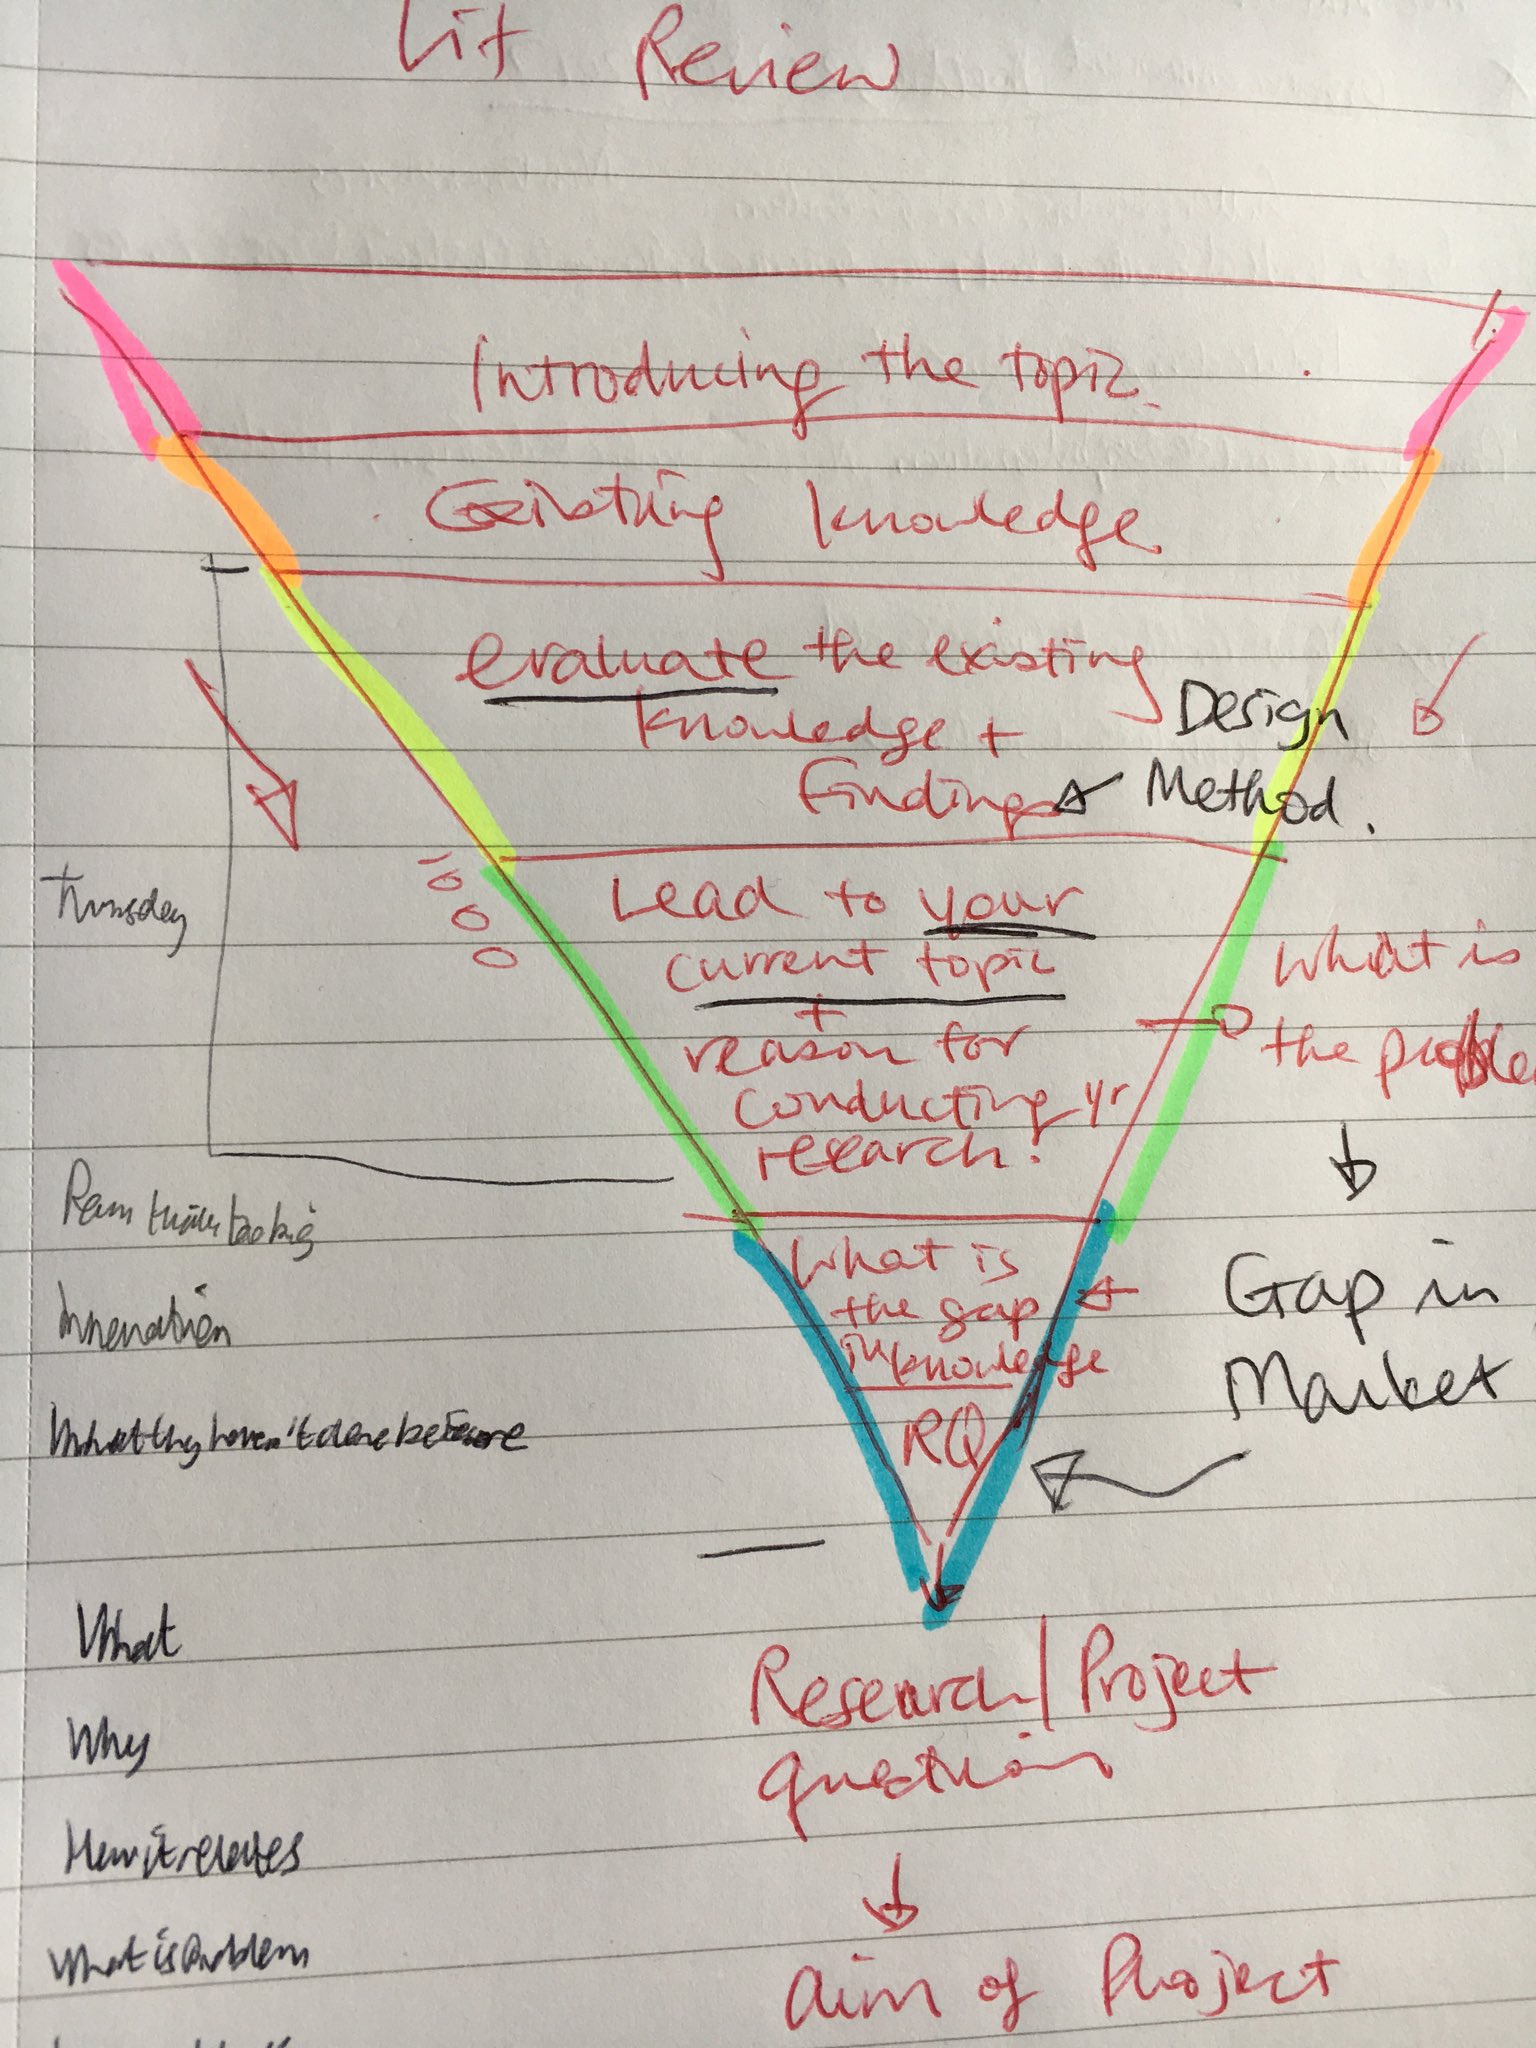 Lit Review
Introducing the topic.
Existing knowledge
evaluate the existing
knowledge +
Findings
Design
Method.
Lead to your
current topic
+
reason for
conducting yr
research.
What is
the proble
What is
the gap
in knowledge
RQ
Gap in
Market
Research/Project
question
Aim of Project
Innovation
What they haven't done before
What
Why
How it relates
What is Problem